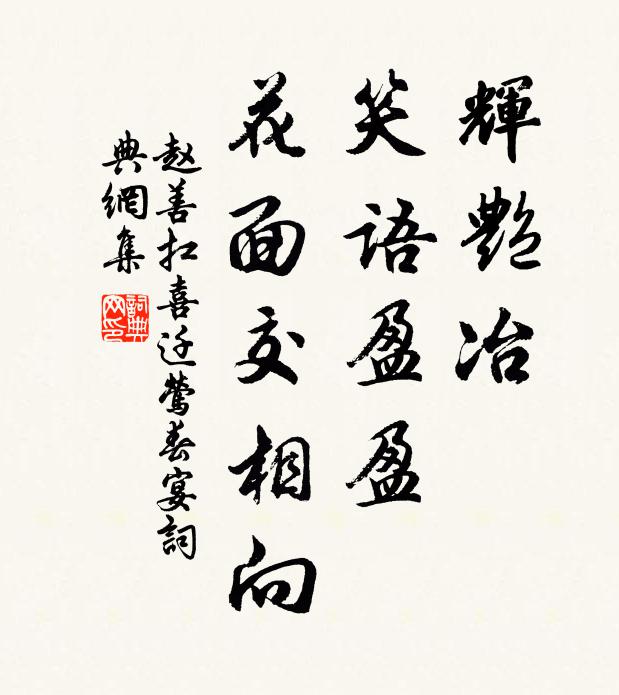 輝艷冶
笑語盈盈
花面交相向
赵善扛喜迁莺春宴詞
典網集
詞典
网印